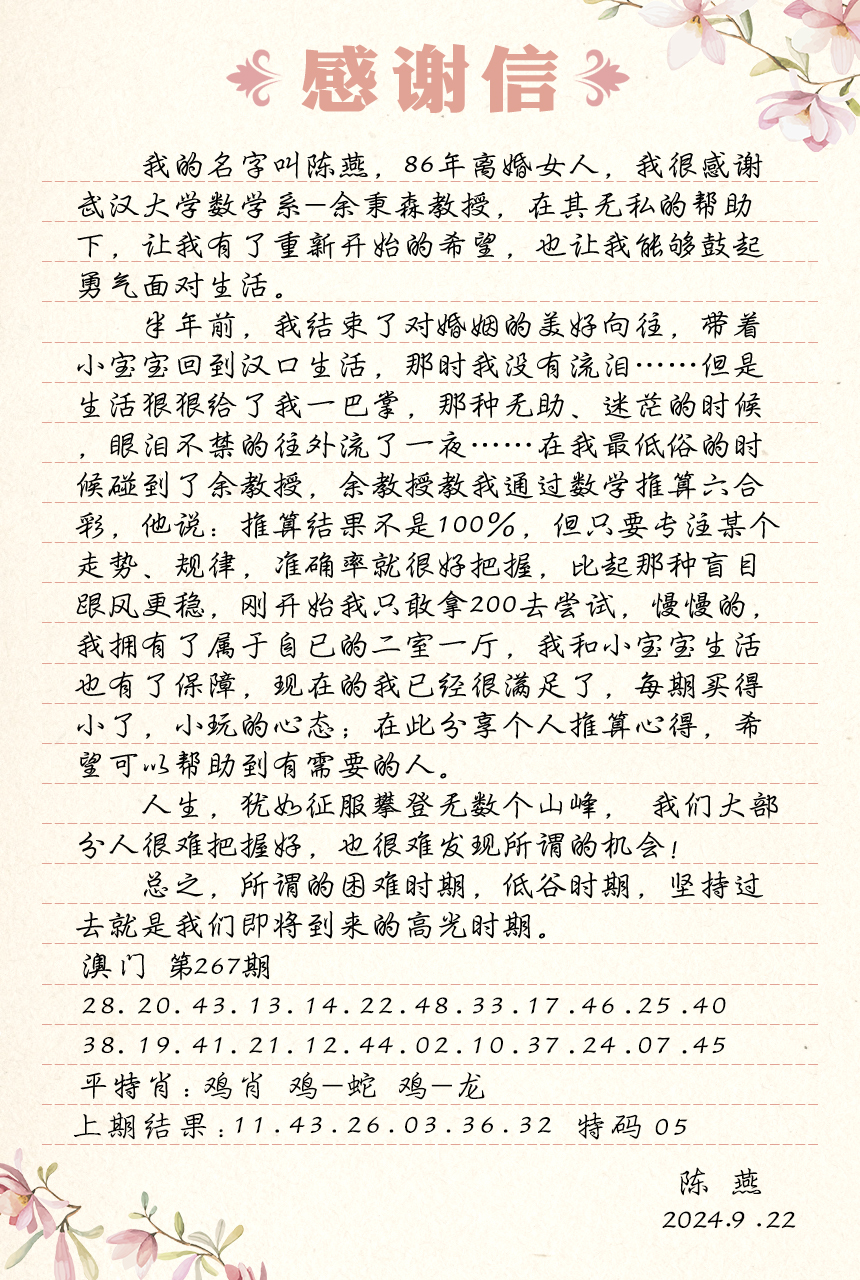 感谢信
我的名字叫陈燕，86年离婚女人，我很感谢
武汉大学数学系—余秉森教授，在其无私的帮助
下，让我有了重新开始的希望，也让我能够鼓起
勇气面对生活。
半年前，我结束了对婚姻的美好向往，带着
小宝宝回到汉口生活，那时我没有流泪……但是
生活狠狠给了我一巴掌，那种无助、迷茫的时候
，眼泪不禁的往外流了一夜……在我最低俗的时
候碰到了余教授，余教授教我通过数学推算六合
彩，他说：推算结果不是100%，但只要专注某个
走势、规律，准确率就很好把握，比起那种盲目
跟风更稳，刚开始我只敢拿200去尝试，慢慢的，
我拥有了属于自已的二室一厅，我和小宝宝生活
也有了保障，现在的我已经很满足了，每期买得
小了，小玩的心态；在此分享个人推算心得，希
望可以帮助到有需要的人。
人生，犹如征服攀登无数个山峰， 我们大部
分人很难把握好，也很难发现所谓的机会！
总之，所谓的困难时期，低谷时期，坚持过
去就是我们即将到来的高光时期。
澳门 第267期
28.20.43.13.14.22.48.33.17.46.25.40
38.19.41.21.12.44.02.10.37.24.07.45
平特肖：鸡肖 鸡—蛇 鸡—龙
上期结果：11.43.26.03.36.32 特码 05
陈 燕
2024.9.22